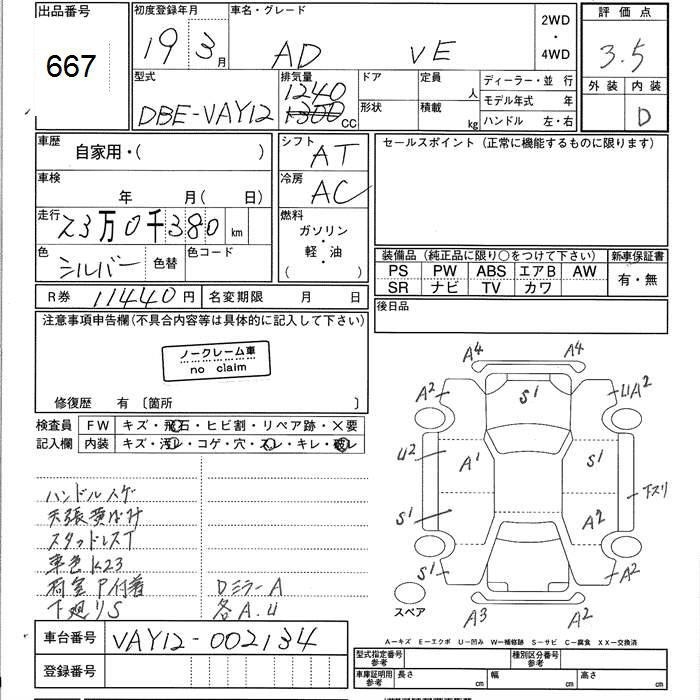 出品番号
667
初度登録年月
19 3月
車名・グレード
AD VE
2WD
・
4WD
評価点
3.5
外装 内装
D
型式
DBE-VAY12
排気量
1240
1300 CC
ドア
形状
定員
人
積載
kg
ディーラー・並 行
モデル年式 年
ハンドル 左・右
車歴
自家用・( )
シフト
AT
車検
年 月( 日)
冷房
AC
走行
23万0千380 km
燃料
ガソリン
・
軽・油
( )
色
シルバー
色替
色コード
R券 11440円
名変期限 月 日
セールスポイント (正常に機能するものに限ります)
装備品 (純正品に限り○をつけて下さい)
新車保証書
PS PW ABS エアB AW
SR ナビ TV カワ
有・無
後日品
注意事項申告欄(不具合内容等は具体的に記入して下さい)
ノークレーム車
no claim
修復歴 有 〔箇所 〕
検査員
記入欄
FW キズ・飛石・ヒビ割・リペア跡・×要
内装 キズ・汚レ・コゲ・穴・スレ・キレ・破レ
ハンドルスゲ
天張黄ばみ
スタッドレスT
車色K23
荷室P付着
下廻りS
DミラーA
各A.U
A4 A4
A2 S1 U1A2
U2 A1 S1
下スリ
S1 A2
S1 A2
A3 A2
スペア
A—キズ E—エクボ U—凹み W—補修跡 S—サビ C—腐食 XX—交換済
車台番号 VAY12-002134
登録番号
型式指定番号
参考
種別区分番号
参考
車庫証明用
参考
長さ cm
幅 cm
高さ cm